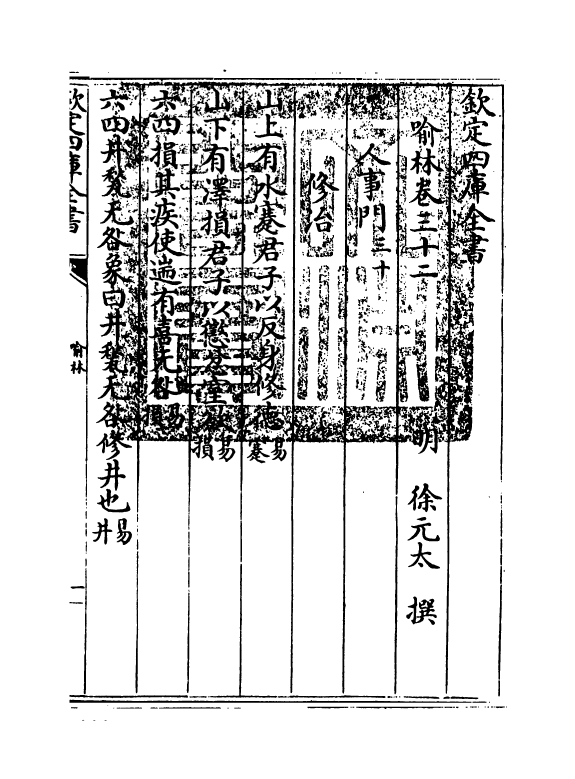 欽定四庫全書
喻林卷三十二　明　徐元太　撰
人事門三十
修治
山上有水蹇君子以反身修德易蹇
山下有澤損君子以懲忿窒欲易損
六四損其疾使遄有喜无咎易
六四井甃无咎象曰井甃无咎修井也易井
欽定四庫全書
喻林
一